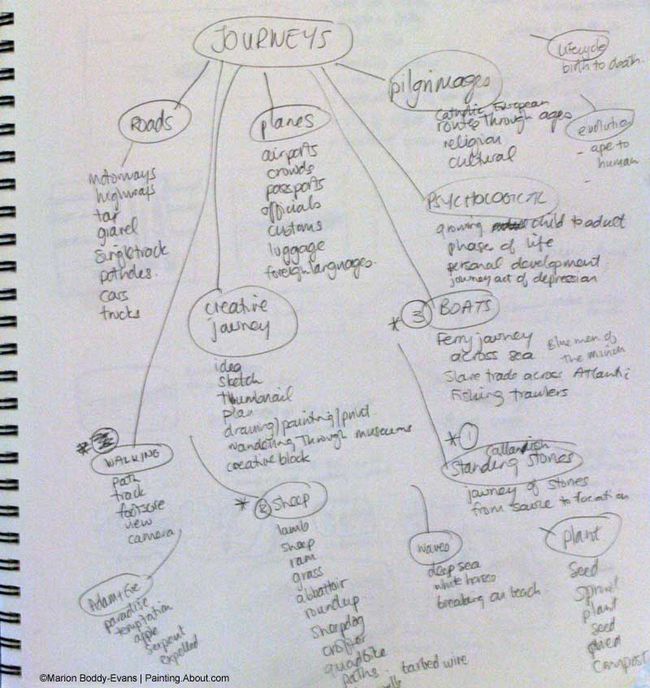 JOURNEYS
Roads
motorways
highways
tar
gravel
singletrack
potholes.
cars
trucks
planes
airports
crowds
passports
officials
customs
luggage
foreign languages.
pilgrimages
catholic, European
routes through ages
religion
cultural
lifecycle
birth to death.
evolution
- ape to
human
-
PSYCHOLOGICAL
growing child to adult
phases of life
personal development
journey out of depression
creative
journey
idea
sketch
thumbnail
plan
drawing/painting/print
wandering through museums
creative block
* 3 BOATS
Ferry journey
across sea
Blue men of
The Minch
Slave trade across Atlantic
Fishing trawlers
*
WALKING
path
track
footsore
view
camera
Adam+Eve
paradise
temptation
apple
serpent
expelled
* 2 Sheep
lamb
sheep
ram
grass
abbattoir
roundup
sheepdog
crofter
quadbike
paths. barbed wire
* 1
Callanish
Standing Stones
journey of stones
from source to formation
waves
deep sea
white horses
breaking on beach
plant
seed
sprout
plant
seed
compost
©Marion Boddy-Evans | Painting.About.com